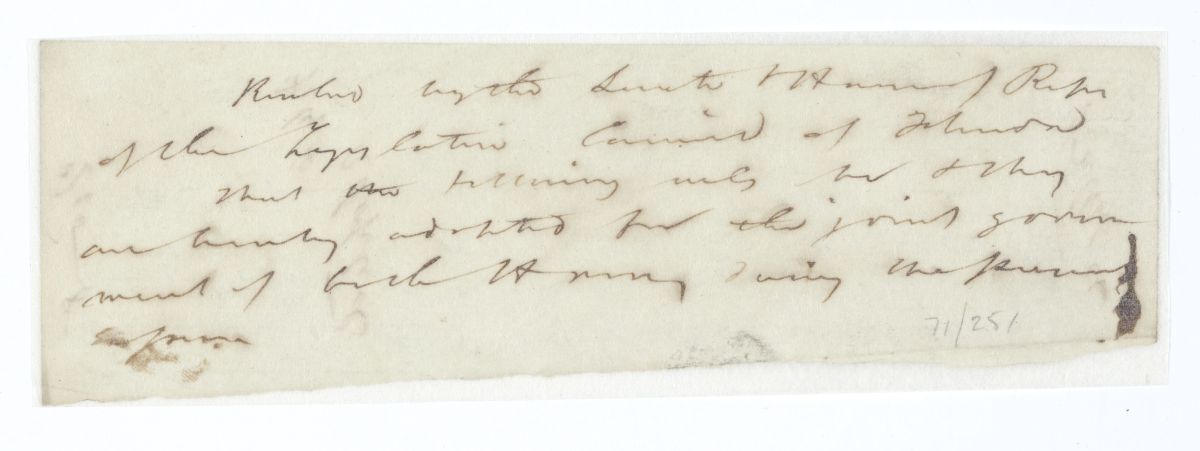 Resolved by the Senate & House of Reps
of the Legislative Council of Florida
That the following rules be & they
are hereby adopted for the joint govern
ment of both Houses during the present
session
71/251